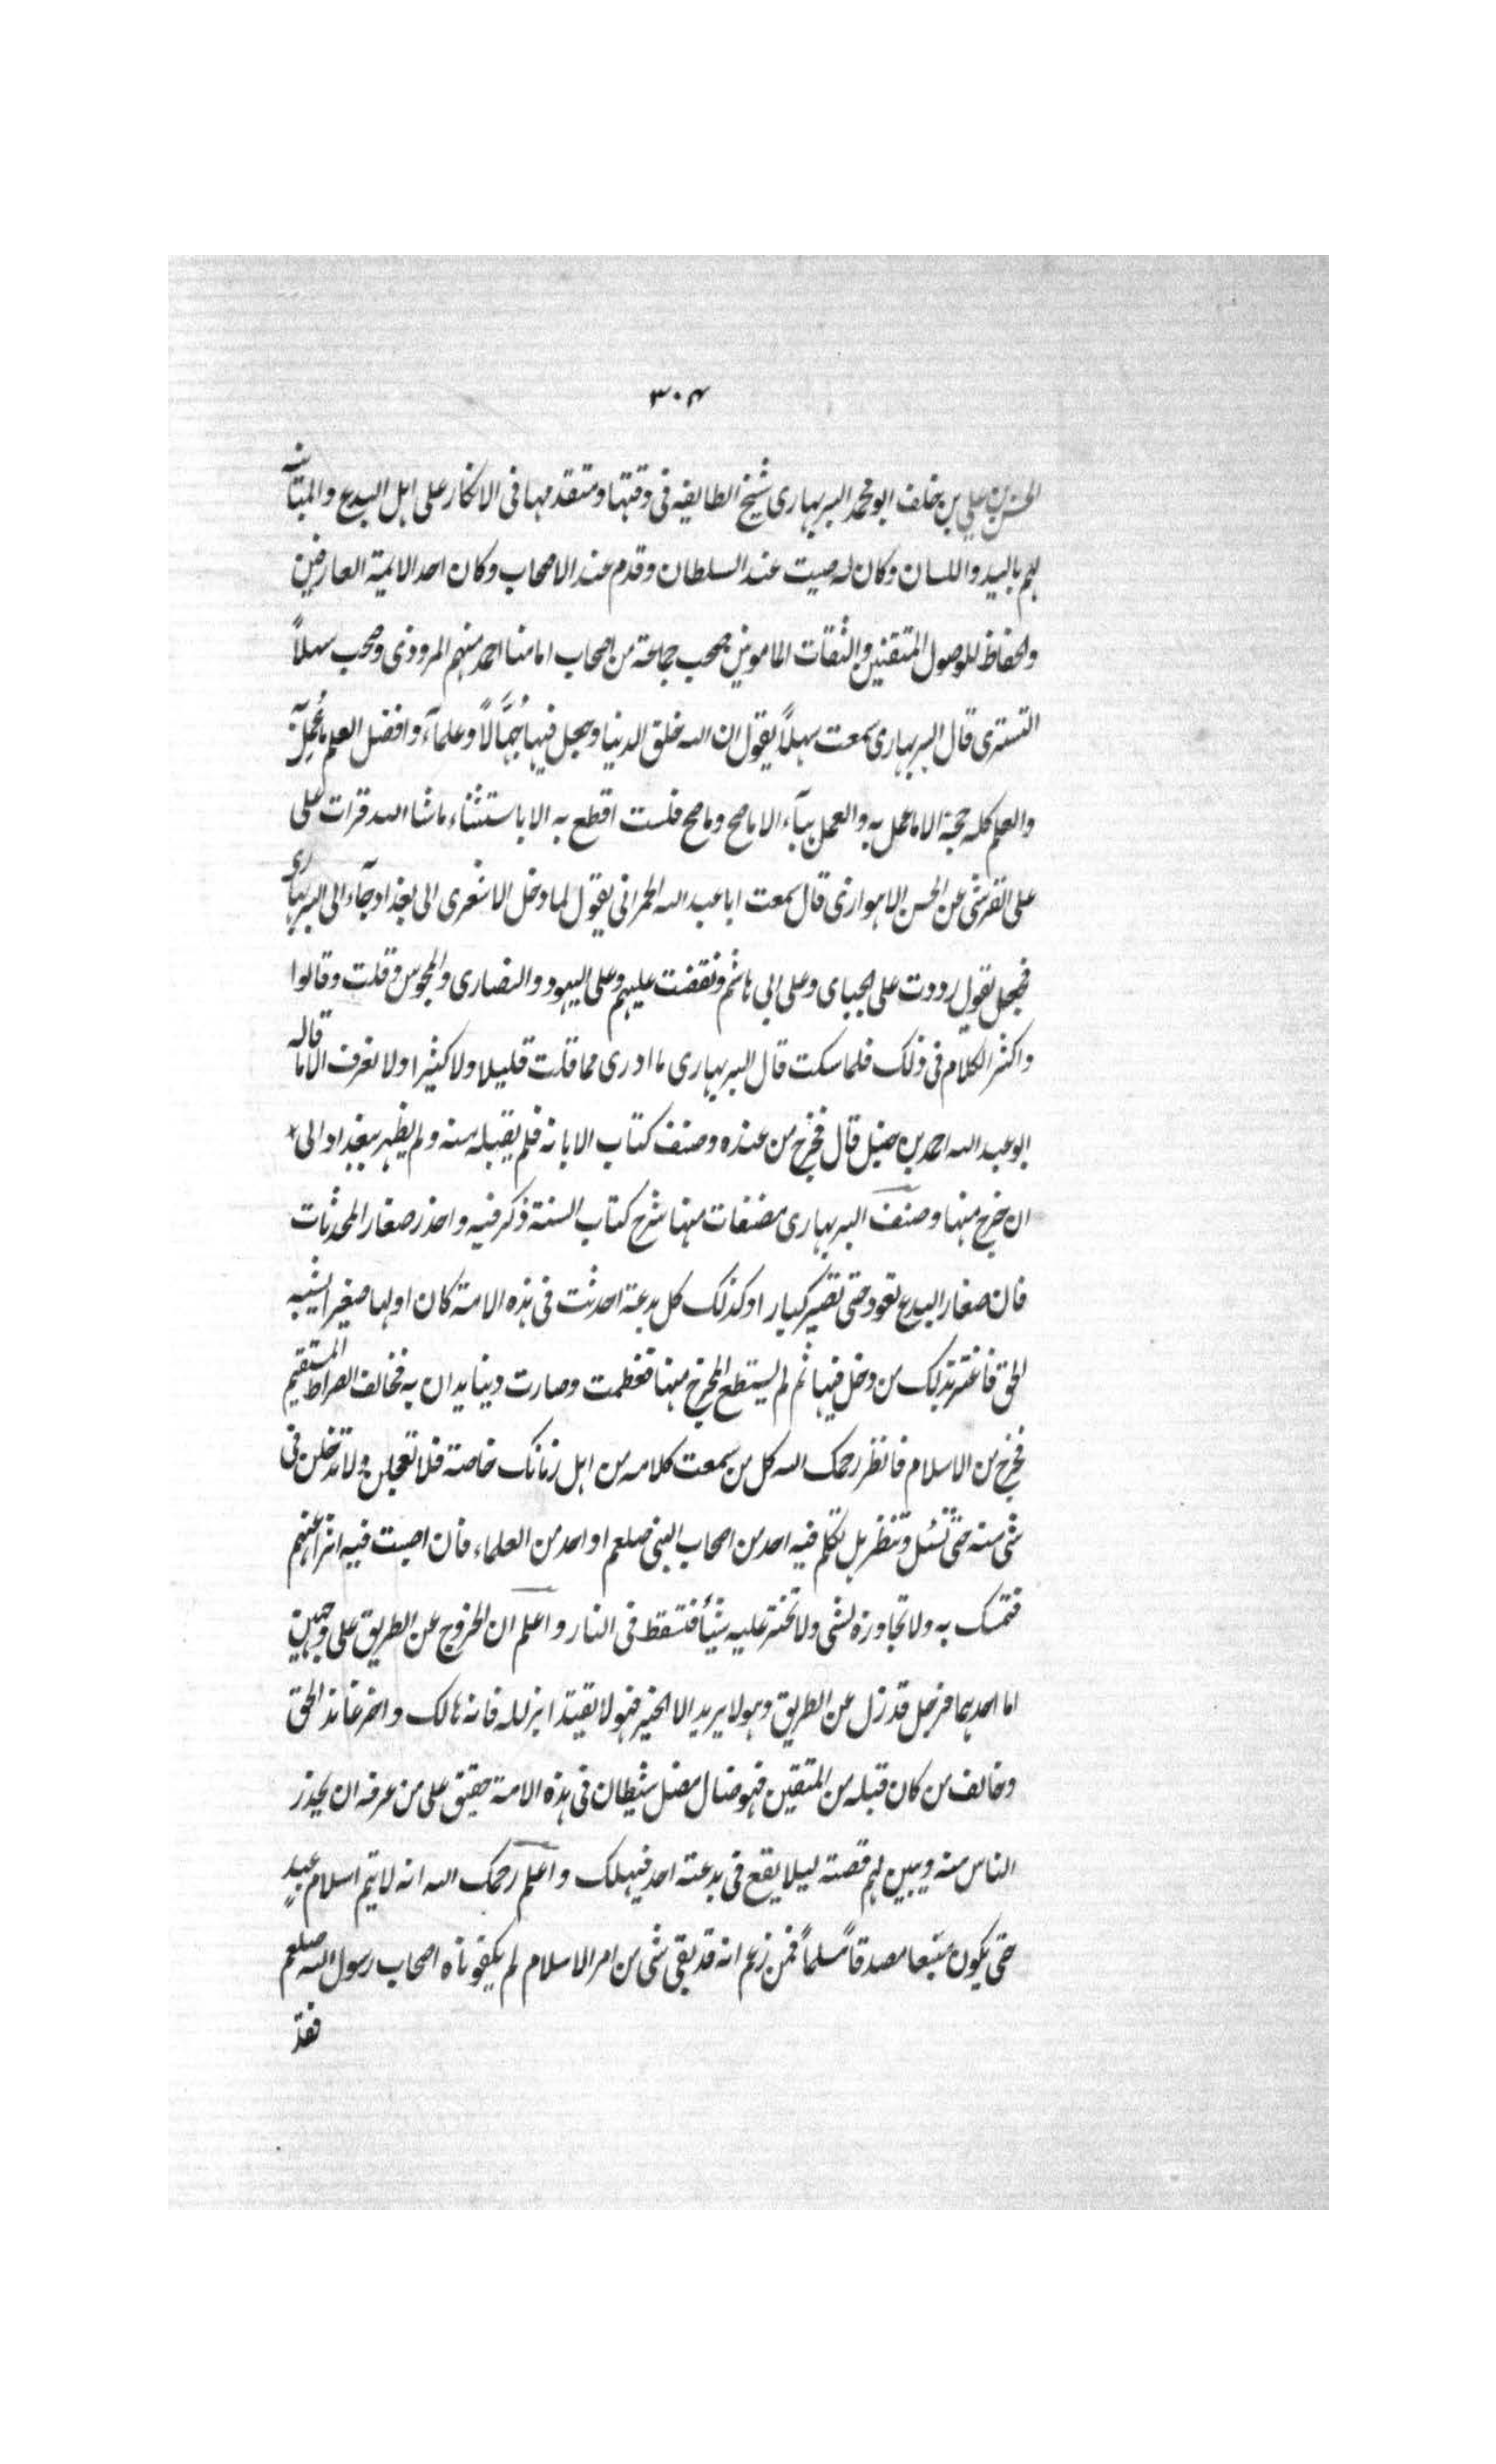 ٣٠٤
الحسن بن علي بن خلف ابو محمد البربهاری شیخ الطایفه فی وقتها ومتقدمها فی الانکار علی اهل البدع والمباینه
لهم بالید واللسان وکان له صیت عند السلطان وقدم عند الاصحاب وکان احد الایمة العارفین
والحفاظ للوصول المتقنین والثقات المامونین صحب جماعة من اصحاب امامنا احمد منهم المروذی وصحب سهلاً
التستری قال البربهاری سمعت سهلاً یقول ان الله خلق الدنیا وجعل فیها جُهَّالاً وعلمآء وافضل العلم ما عُمِلَ به
والعلم کله حجة الا ما عمل به والعمل هبآء الا ما صح وما صح فلست اقطع به الا باستثناء ماشا الله قرات علی
علی القرشی عن الحسن الاهوازی قال سمعت ابا عبد الله الحمرانی یقول لما دخل الاشعری الی بغداد جآء الی البربهاری
فجعل یقول رددت علی الجبای وعلی ابی هاشم ونقضت علیهم وعلی الیهود والنصاری والمجوس وقلت وقالوا
واکثر الکلام فی ذلک فلما سکت قال البربهاری ما ادری مما قلت قلیلا ولا کثیرا ولا نعرف الا ما قاله
ابو عبد الله احمد بن حنبل قال فخرج من عنده وصنف کتاب الابانه فلم یقبله منه ولم یظهر ببغداد الی
ان خرج منها وصنف البربهاری مصنفات منها شرح کتاب السنة ذکر فیه واحذر صغار المحدثات
فان صغار البدع تعود حتی تصیر کبارا وکذلک کل بدعة احدثت فی هذه الامة کان اولها صغیرا یشبه
الحق فاغتر بذلک من دخل فیها ثم لم یستطع المخرج منها فعظمت وصارت دینا یدان به فخالف الصراط المستقیم
فخرج من الاسلام فانظر رحمک الله کل من سمعت کلامه من اهل زمانک خاصة فلا تعجلن ولا تدخلن فی
شی منه حتی تسئل وتنظر هل تکلم فیه احد من اصحاب النبی صلعم او احد من العلماء فان اصبت فیه اثرا عنهم
فتمسک به ولا تجاوزه لشی ولا تختر علیه شیئاً فتسقط فی النار واعلم ان الخروج عن الطریق علی وجهین
اما احدهما فرجل قد زل عن الطریق وهو لا یرید الا الخیر فهو لا یقتدا بزلله فانه هالک واخر عاند الحق
وخالف من کان قبله من المتقین فهو ضال مضل شیطان فی هذه الامة حقیق علی من عرفه ان یحذر
الناس منه ویبین لهم قصته لیلا یقع فی بدعته احد فیهلک واعلم رحمک الله انه لا یتم اسلام عبدٍ
حتی یکون متبعا مصدقاً مسلماً فمن زعم انه قد بقی شی من امر الاسلام لم یکفوناه اصحاب رسول الله صلعم
فقد